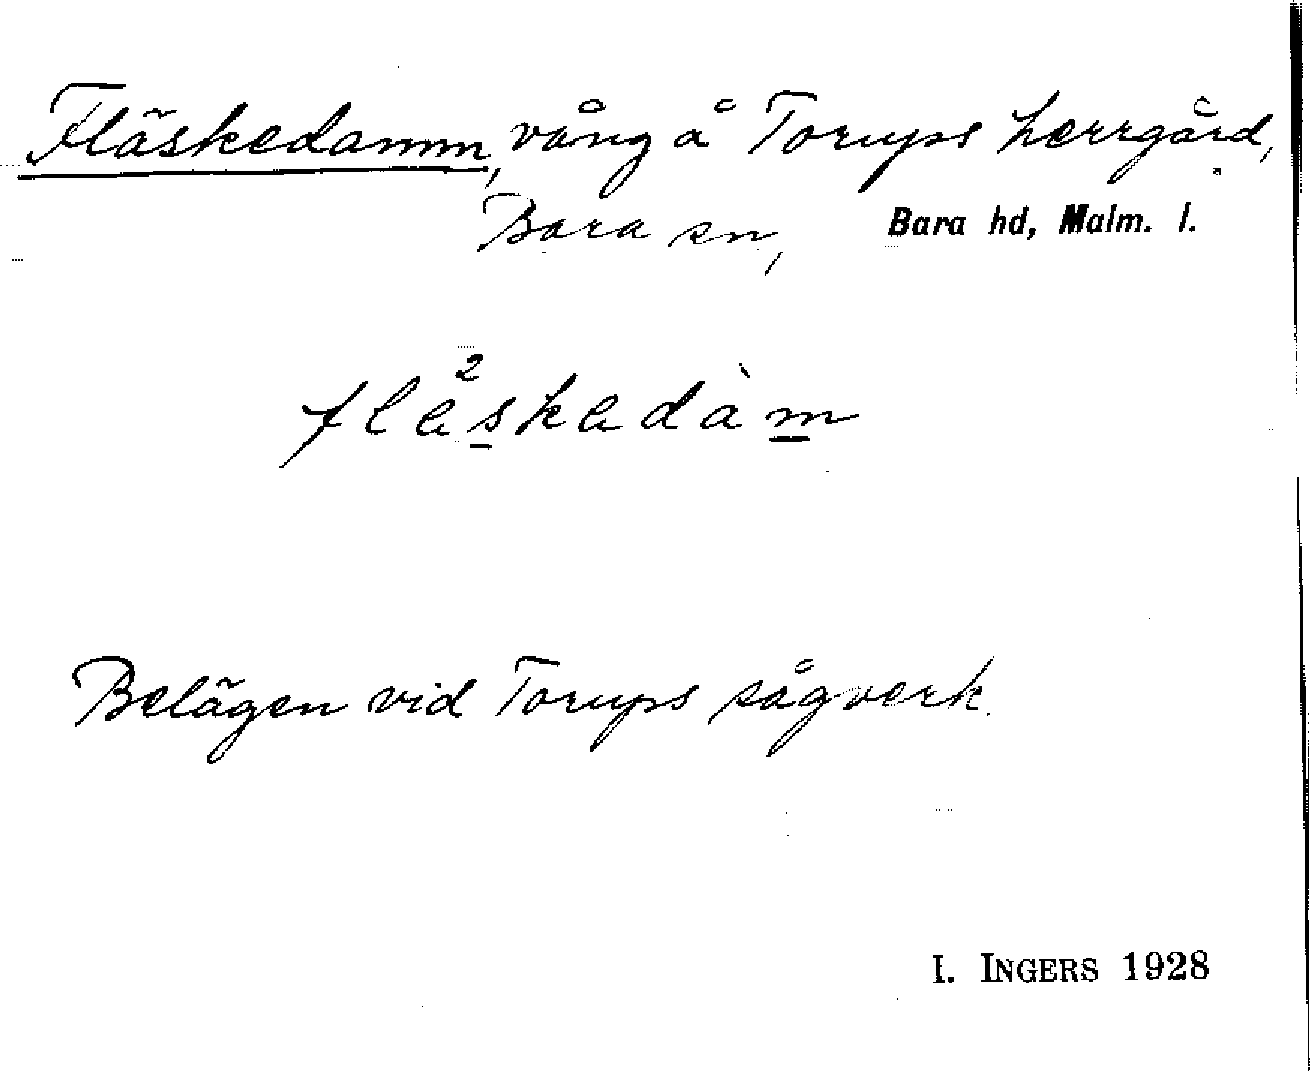 Fläskedamm, vång å Torups herrgård,
Bara sn, Bara hd, Malm. l.
Belägen vid Torups sågverk.
I. INGERS 1928